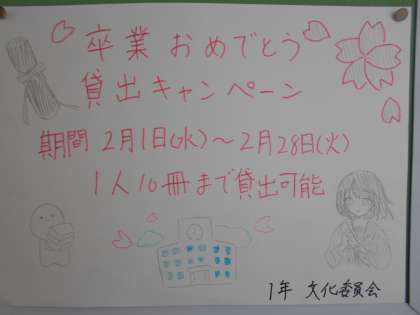 卒業おめでとう
貸出キャンペーン
期間 2月1日(水)～2月28日(火)
1人10冊まで貸出可能
1年 文化委員会